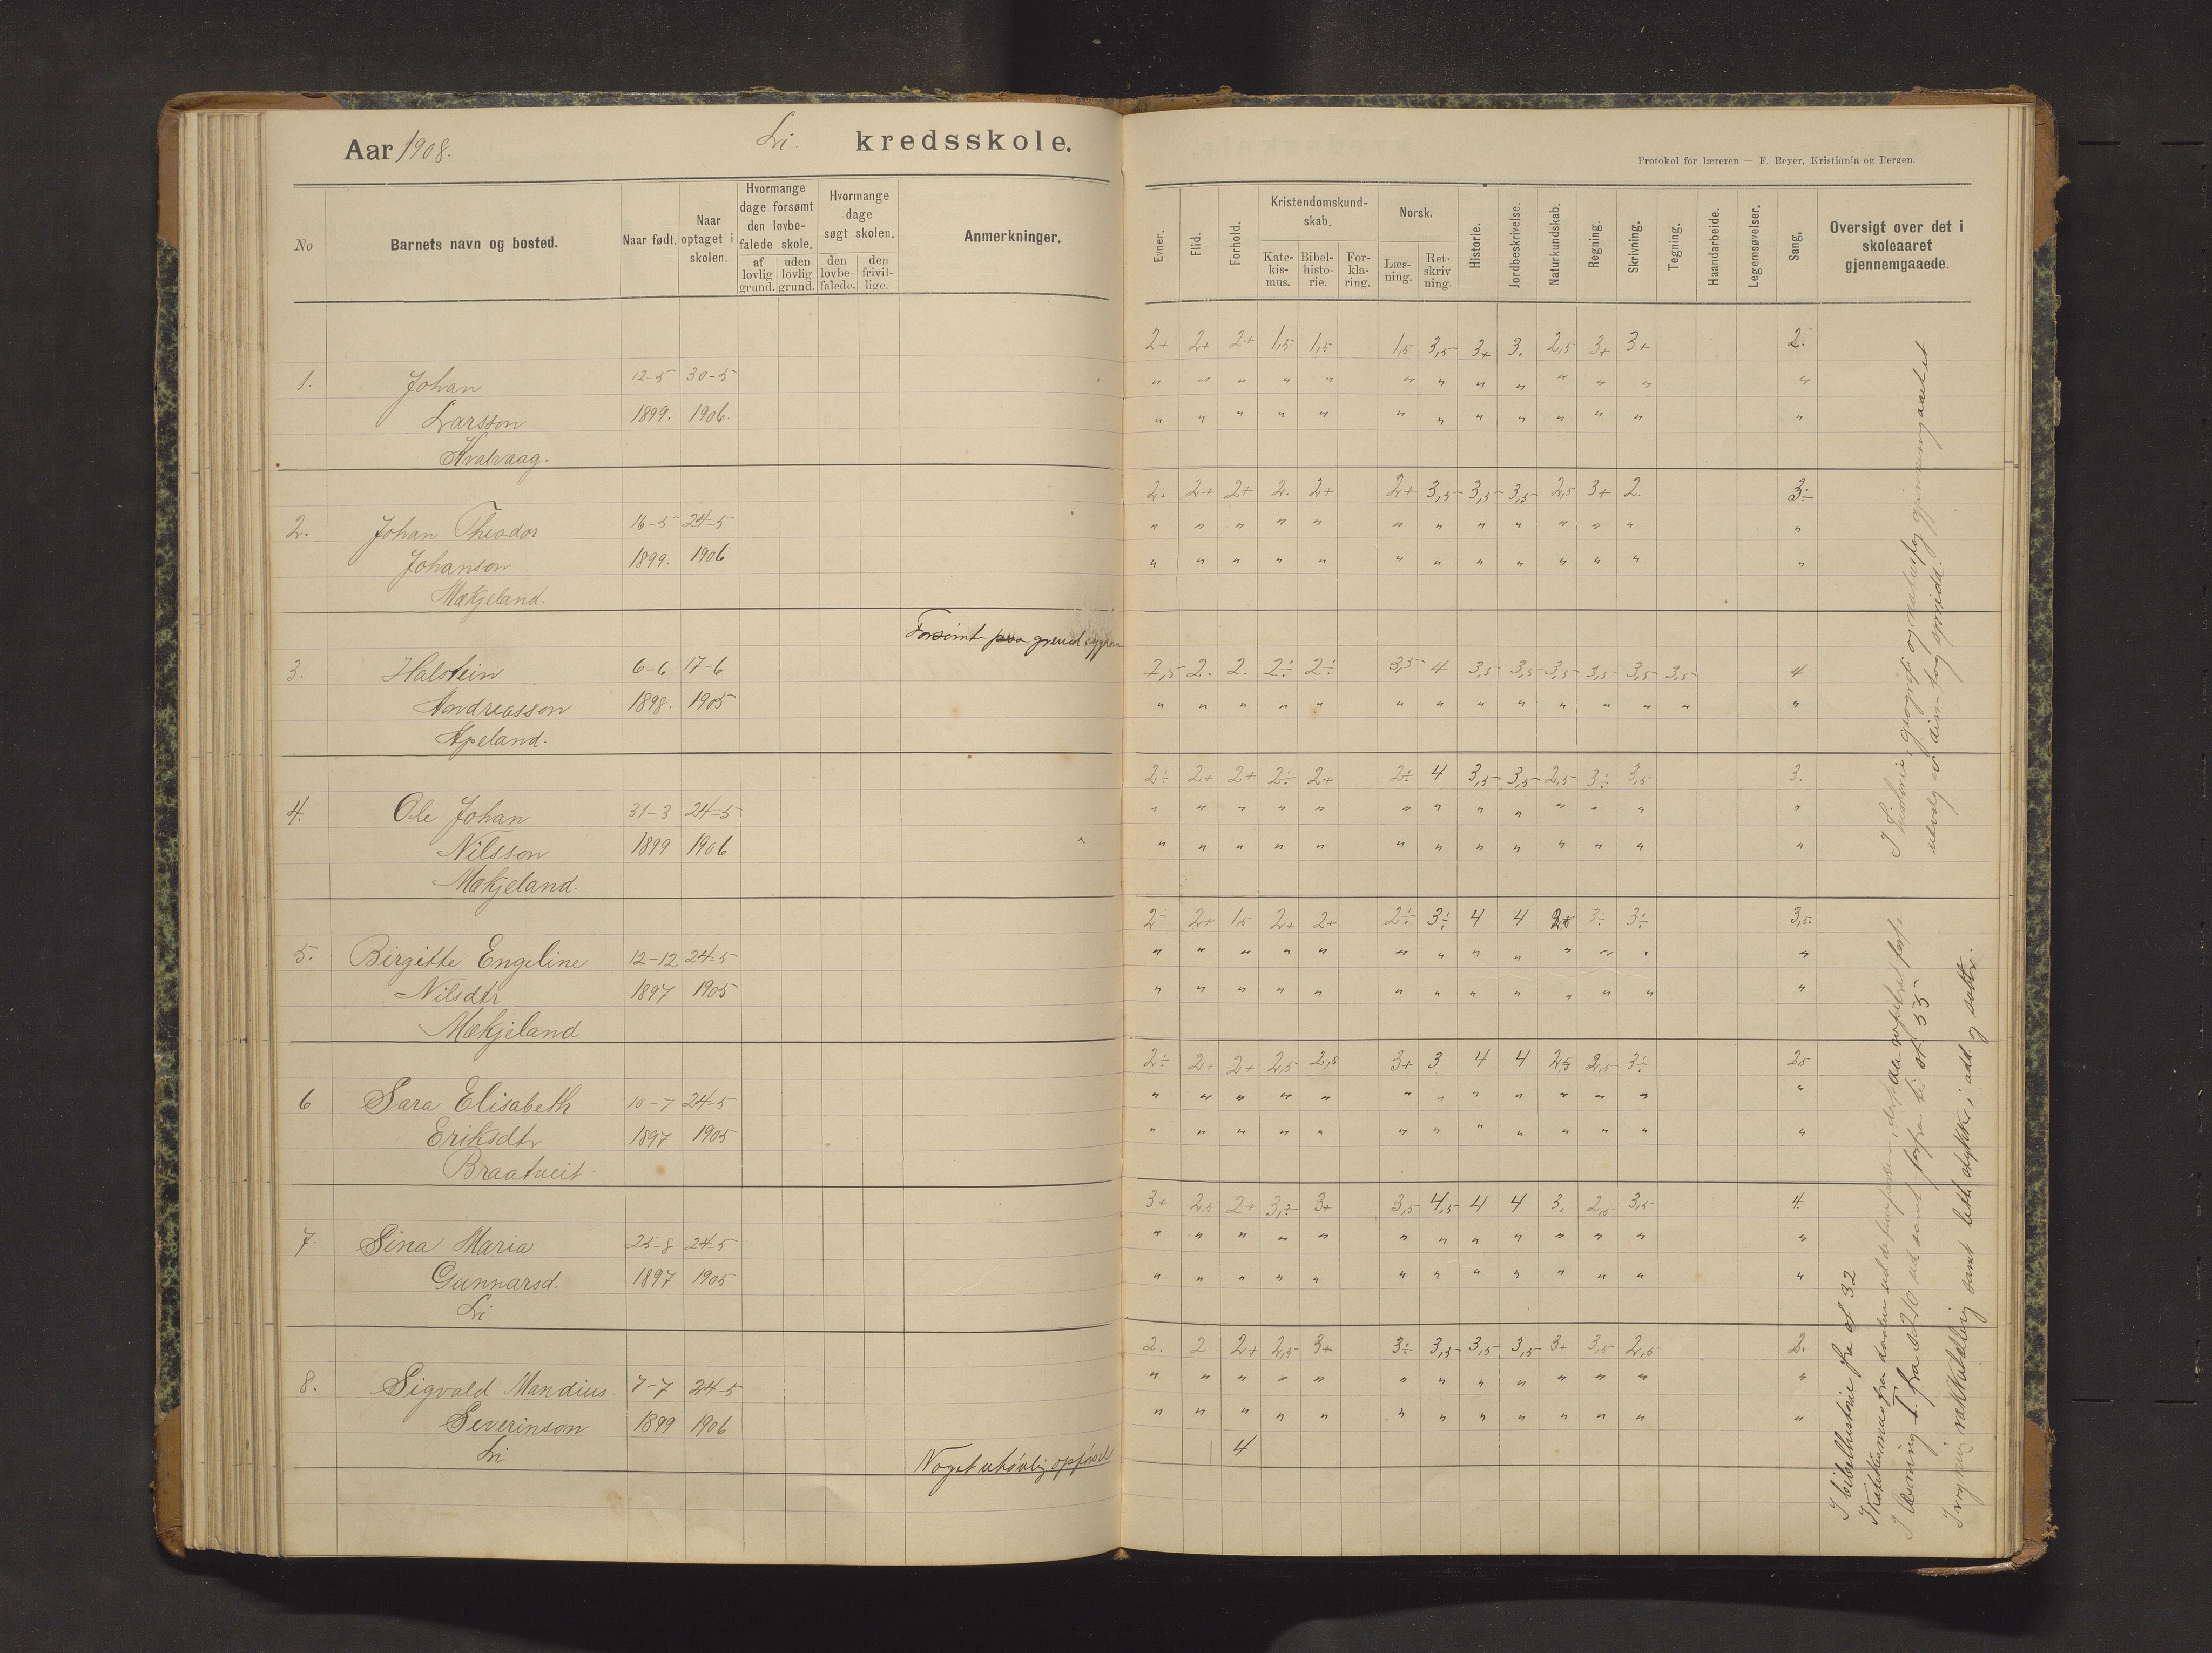 Aar 1908.
Li. kredsskole.
No
Barnets navn og bosted.
Naar født.
Naar optaget i skolen.
Hvormange dage forsømt den lovbefalede skole.
af lovlig grund.
uden lovlig grund.
Hvormange dage søgt skolen.
den lovbefalede.
den frivillige.
Anmerkninger.
1. Johan 12-5 30-5
Larsson 1899. 1906.
Kvalvaag.
2. Johan Theodor 16-5 24-5
Johanson 1899. 1906
Mækjeland.
Forsømt paa grund
3. Halstein 6-6 17-6
Andreasson 1898. 1905
Apeland.
4. Ole Johan 31-3 24-5
Nilsson 1899 1906
Mækjeland.
5. Birgitte Engeline 12-12 24-5
Nilsdtr 1897 1905
Mækjeland
6 Sara Elisabeth 10-7 24-5
Eriksdtr 1897 1905
Braatveit.
7. Sina Maria 25-8 24-5
Gunnarsd. 1897 1905
Li
8. Sigvald Mandius 7-7 24-5
Severinson 1899 1906
Li
Noget uhøvlig opførsel
Protokol for læreren — F. Beyer, Kristiania og Bergen.
Evner.
Flid.
Forhold.
Kristendomskundskab.
Katekismus.
Bibelhistorie.
Forklaring.
Norsk.
Læsning.
Retskrivning.
Historie.
Jordbeskrivelse.
Naturkundskab.
Regning.
Skrivning.
Tegning.
Haandarbeide.
Legemsøvelser.
Sang.
Oversigt over det i skoleaaret gjennemgaaede.
2+ 2+ 2+ 1,5 1,5 1,5 3,5 3+ 3. 2,5 3+ 3+ 2.
" " " " " " " " " " " " "
" " " " " " " " " " " " "
2. 2+ 2+ 2. 2+ 2+ 3,5 3,5 3,5 2,5 3+ 2. 3÷
" " " " " " " " " " " " "
" " " " " " " " " " " " "
2,5 2. 2. 2÷ 2÷ 3,5 4 3,5 3,5 3,5 3,5 3,5 3,5 4
" " " " " " " " " " " " " "
2÷ 2+ 2+ 2÷ 2+ 2÷ 4 3,5 3,5 2,5 3÷ 3,5 3.
" " " " " " " " " " " " "
" " " " " " " " " " " " "
2÷ 2+ 1,5 2+ 2+ 2÷ 3÷ 4 4 2,5 3÷ 3÷ 3,5.
" " " " " " " " " " " " "
" " " " " " " " " " " " "
2÷ 2+ 2+ 2,5 2,5 3+ 3 4 4 2,5 2,5 3÷ 2,5
" " " " " " " " " " " " "
" " " " " " " " " " " " "
3+ 2,5 2+ 3,÷ 3+ 3,5 4,5 4 4 3. 2,5 3,5 4
" " " " " " " " " " " " "
" " " " " " " " " " " " "
2. 2 2+ 2,5 3+ 3÷ 3,5 3,5 3,5 3+ 3,5 2,5 2.
" " " " " " " " " " " " "
" " " " " " " " " " " " "
4
I bibelhistorie fra st 32
I katekismus fra
I læsning I fra s 210 ud samt forfra til st. 55
samt lette stykker i add. og subtr.
I historie, geografi og naturfag gjennemgaaet et
udvalg